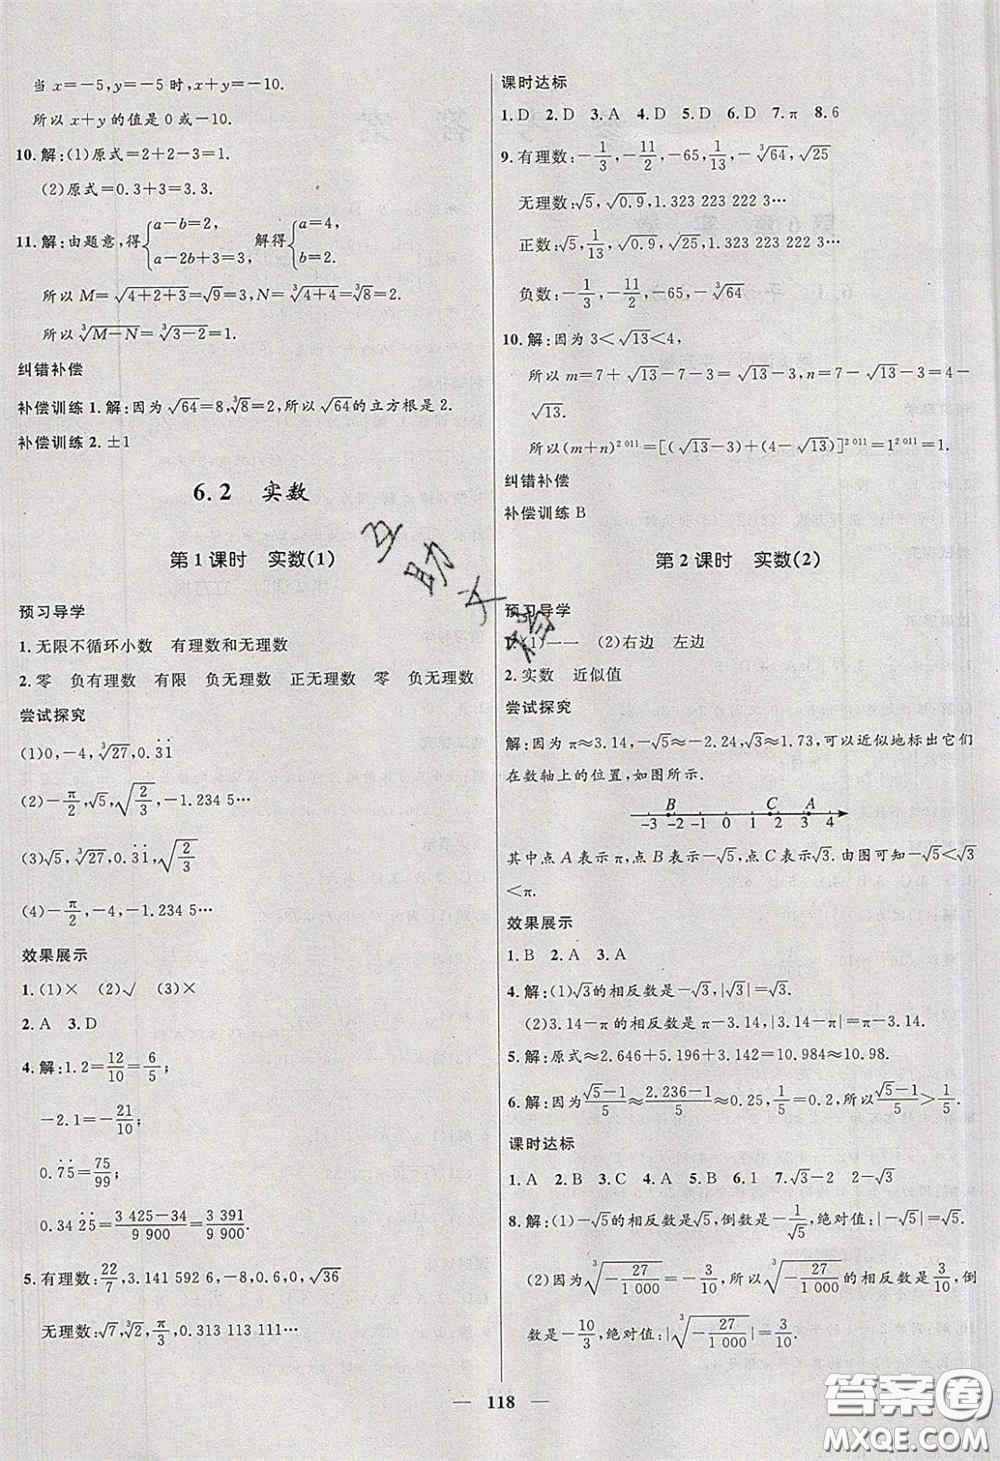 当 x=-5,y=-5 时,x+y=-10.
所以 x+y 的值是 0 或-10.
10. 解:(1)原式=2+2-3=1.
(2)原式=0.3+3=3.3.
11. 解:由题意,得{a-b=2, a-2b+3=2, 解得{a=4, b=2.
所以 M=√(4+2+3)=√9=3,N=³√(4+4)=³√8=2.
所以 ³√(M-N)=³√(3-2)=1.
纠错补偿
补偿训练 1. 解:因为√64=8,³√8=2,所以√64的立方根是 2.
补偿训练 2. ±1
6.2 实数
第 1 课时 实数(1)
预习导学
1. 无限不循环小数 有理数和无理数
2. 零 负有理数 有限 负无理数 正无理数 零 负无理数
尝试探究
(1)0,-4,³√27,0.3̇1̇
(2)-π/2,√5,√(2/3),-1.234 5…
(3)√5,³√27,0.3̇1̇,√(2/3)
(4)-π/2,-4,-1.234 5…
效果展示
1. (1)× (2)√ (3)×
2. A 3. D
4. 解:1.2=12/10=6/5;
-2.1=-21/10;
0.7̇5̇=75/99;
0.34 2̇5̇=(3 425-34)/9 900=3 391/9 900.
5. 有理数:22/7,3.141 592 6,-8,0.6,0,√36
无理数:√7,³√2,π/3,0.313 113 111…
课时达标
1. D 2. D 3. A 4. D 5. D 6. D 7. π 8. 6
9. 有理数:-1/3,-11/2,-65,1/13,-³√64,√25
无理数:√5,√0.9,1.323 223 222 3…
正数:√5,1/13,√0.9,√25,1.323 223 222 3…
负数:-1/3,-11/2,-65,-³√64
10. 解:因为 3<√13<4,
所以 m=7+√13-7-3=√13-3,n=7-√13-3=4-
√13.
所以(m+n)^2 011=[(√13-3)+(4-√13)]^2 011=1^2 011=1.
纠错补偿
补偿训练 B
第 2 课时 实数(2)
预习导学
1. (1)一一 (2)右边 左边
2. 实数 近似值
尝试探究
解:因为 π≈3.14,-√5≈-2.24,√3≈1.73,可以近似地标出它们
在数轴上的位置,如图所示.
B C A
-3 -2 -1 0 1 2 3 4
其中点 A 表示 π,点 B 表示-√5,点 C 表示√3.由图可知-√5<√3
<π.
效果展示
1. B 2. A 3. A
4. 解:(1)√3的相反数是-√3,|√3|=√3.
(2)3.14-π 的相反数是 π-3.14,|3.14-π|=π-3.14.
5. 解:原式≈2.646+5.196+3.142=10.984≈10.98.
6. 解:因为(√5-1)/5≈(2.236-1)/5≈0.25,1/5=0.2,所以(√5-1)/5>1/5.
课时达标
1. A 2. B 3. C 4. A 5. B 6. 1 7. √3-2 2-√3
8. 解:(1)-√5的相反数是√5,倒数是-1/√5,绝对值:|-√5|=√5.
(2)因为³√(-27/1 000)=-3/10,所以³√(-27/1 000)的相反数是3/10,倒
数是-10/3,绝对值:|³√(-27/1 000)|=3/10.
118
互助文档
答案圈
MXQE.COM